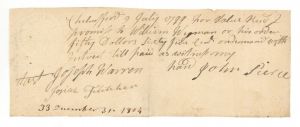 Chelmsford 9 July 1799 For Value Recd I
promise to William Wyman or his order
fifty Dollars Sixty five Cents on demand with
Interest till paid as witness my
hand John Pierce
Attest Joseph Warren
Josiah Fletcher
December 31 1804